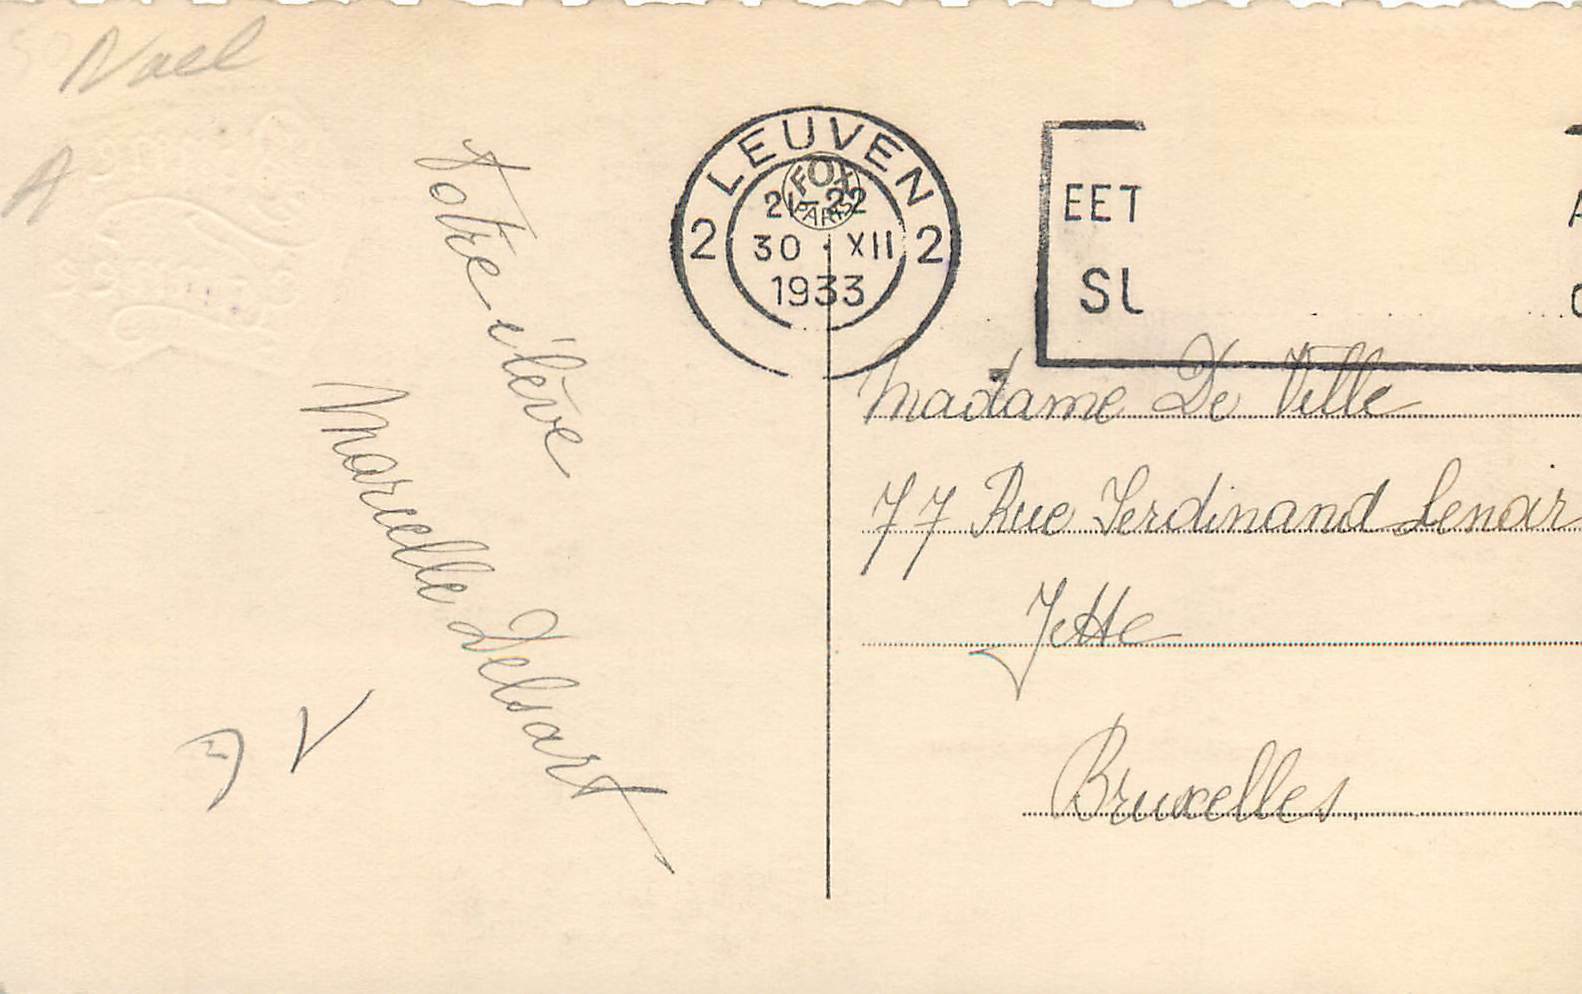 Noel
A
Votre élève
Marielle Delsart
LEUVEN
FOX
PARIS
21-22
2 30 · XII 2
1933
EET
SL
Madame De Ville
77 Rue Ferdinand Lenoir
Jette
Bruxelles